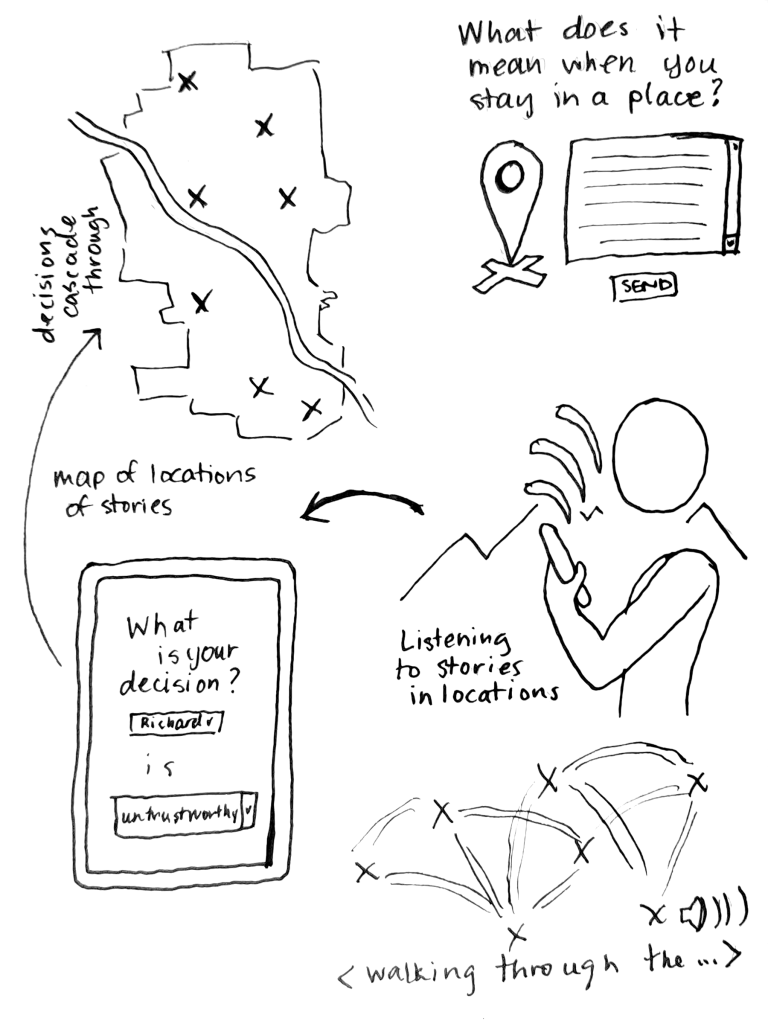 What does it
mean when you
stay in a place?
SEND
decisions
cascade
through
map of locations
of stories
Listening
to stories
in locations
What
is your
decision?
Richard
is
untrustworthy
< walking through the ... >